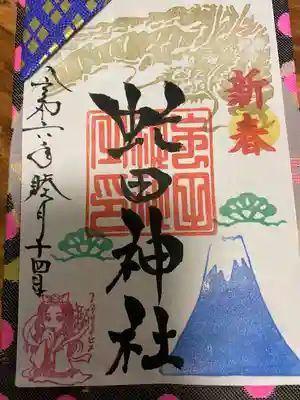 新春
虻田神社
令和六年睦月十四日